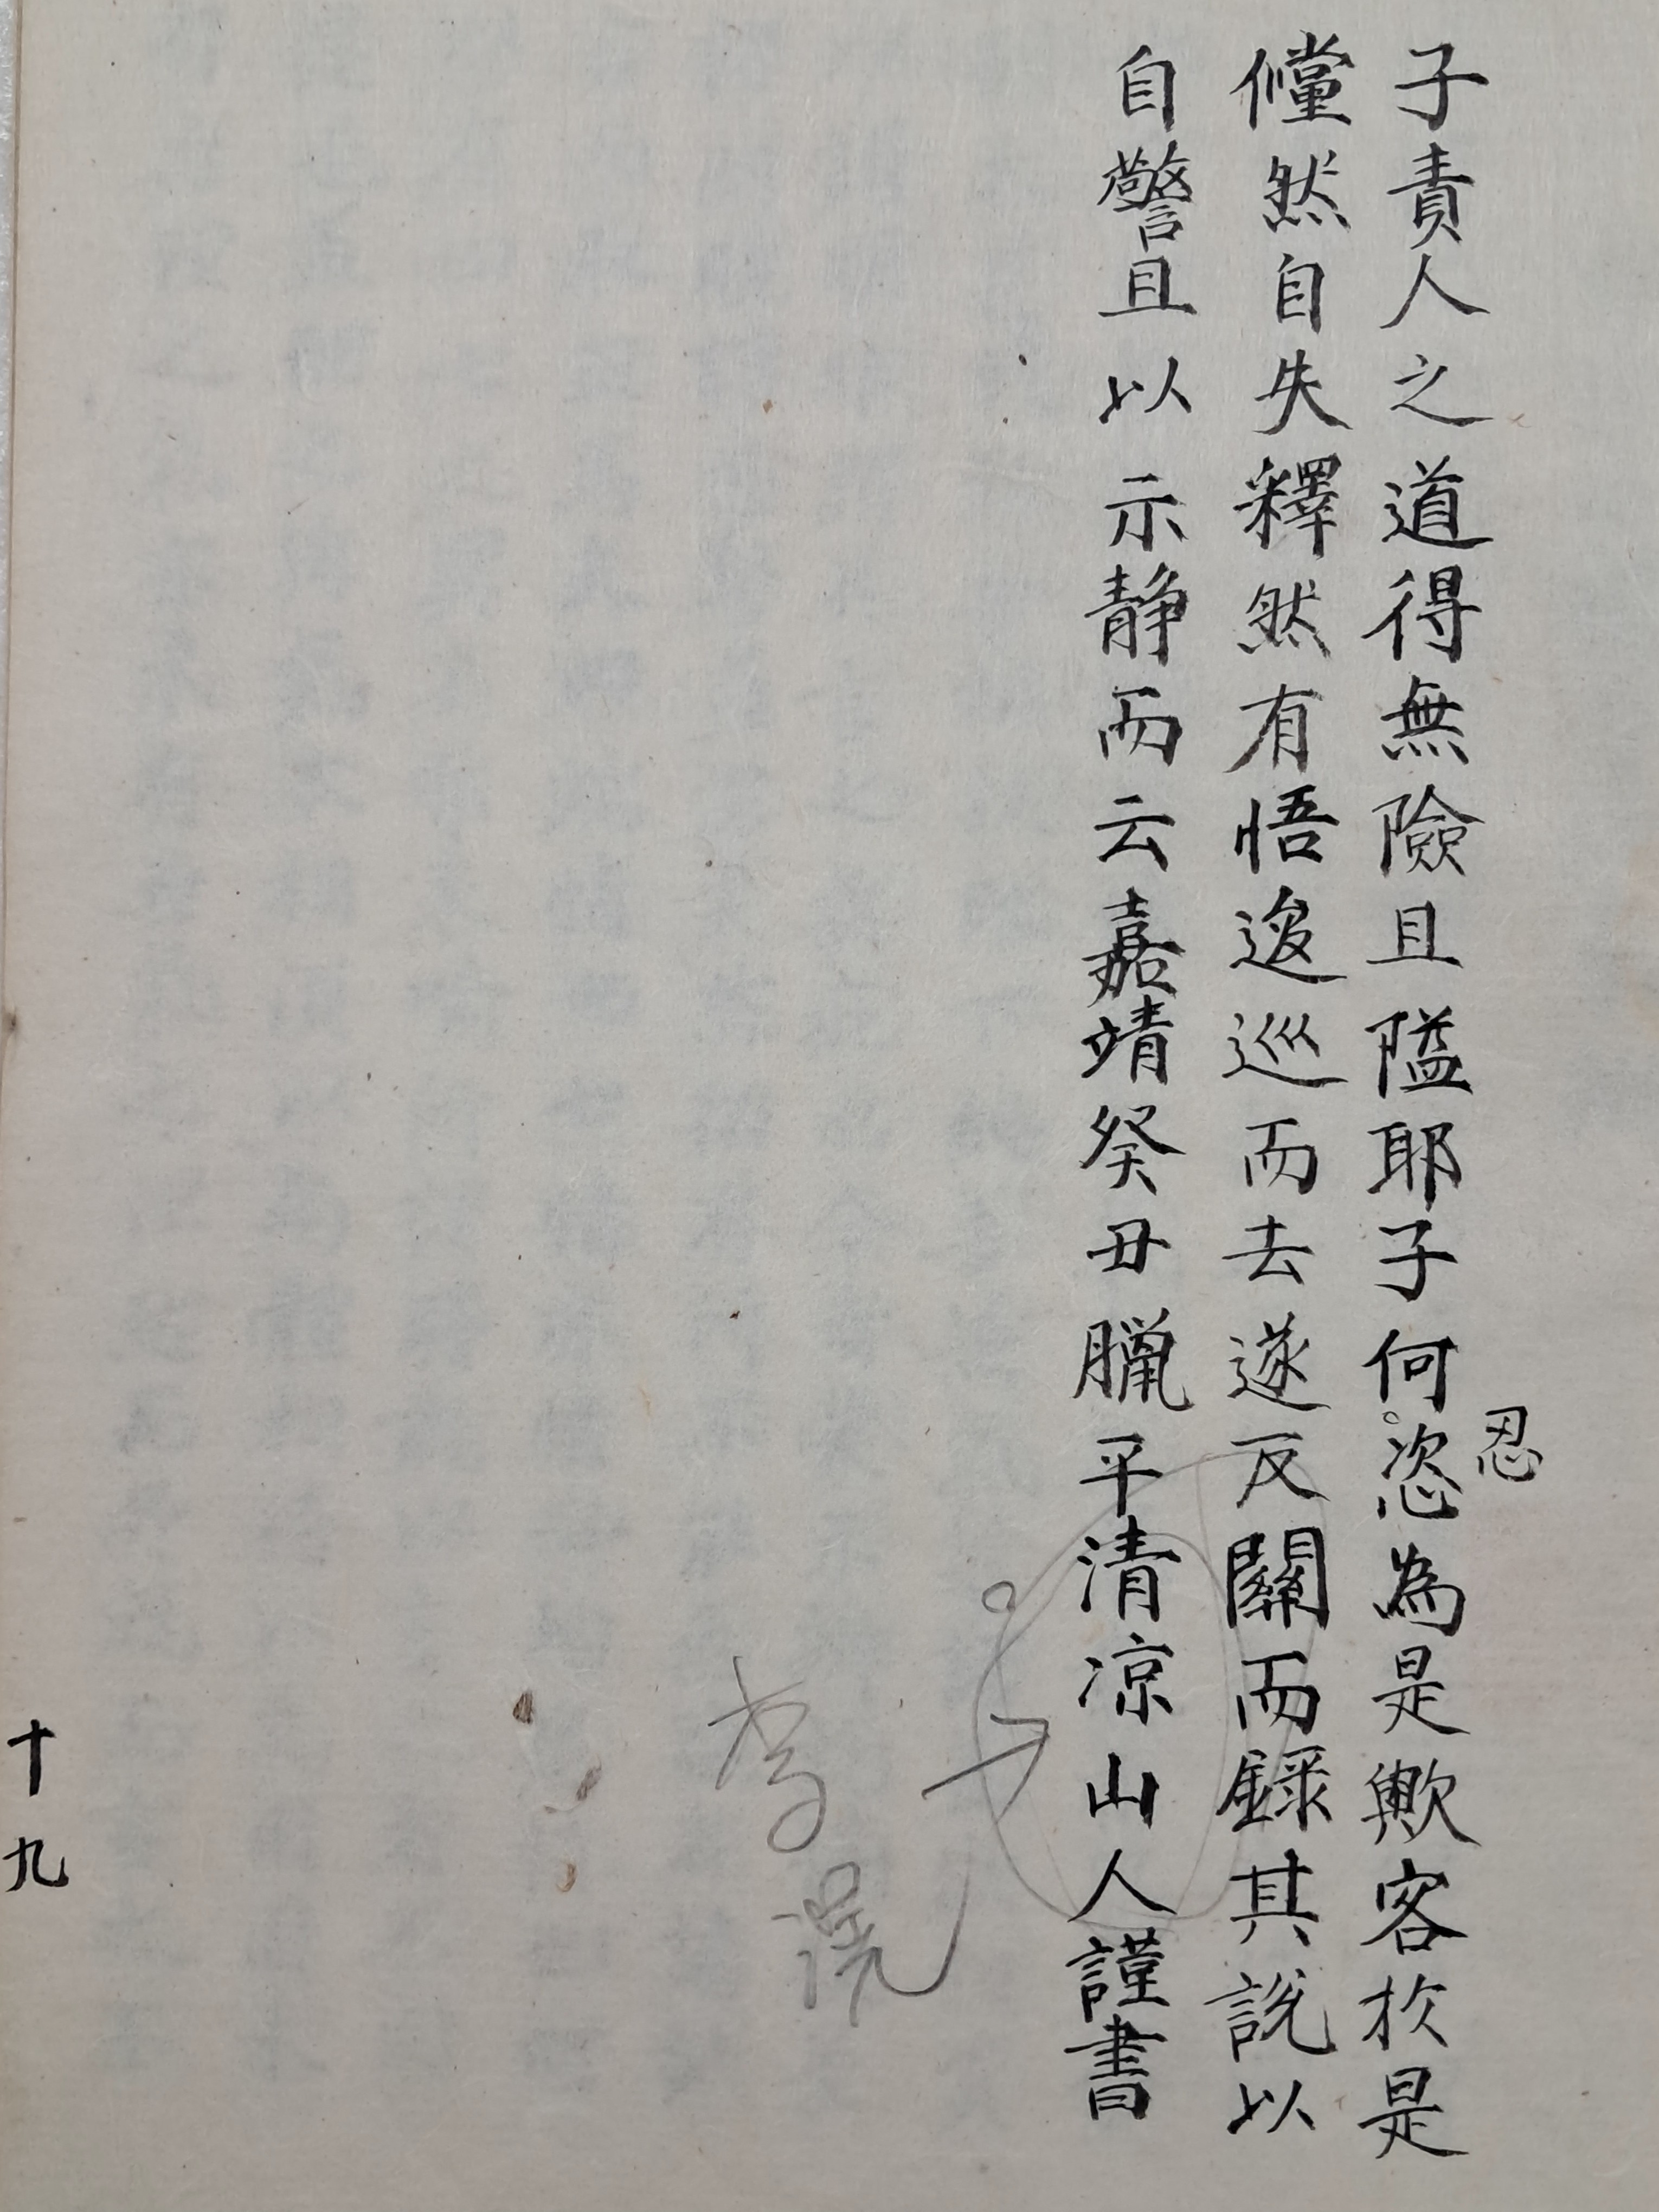 子責人之道得無險且隘耶子何恣為是歟客扵是
忍
儻然自失釋然有悟逡巡而去遂反關而録其說以
自警且以示静而云嘉靖癸丑臘平清凉山人謹書
李滉
十九